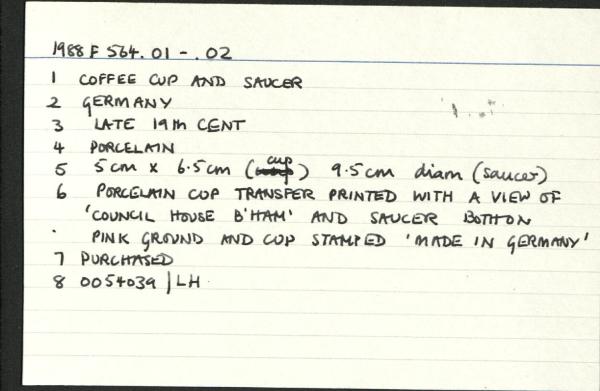 1988 F 564.01 - .02
1 COFFEE CUP AND SAUCER
2 GERMANY
3 LATE 19th CENT
4 PORCELAIN
5 5cm x 6.5cm (cup) 9.5cm diam (saucer)
6 PORCELAIN CUP TRANSFER PRINTED WITH A VIEW OF
'COUNCIL HOUSE B'HAM' AND SAUCER BOTTON
PINK GROUND AND CUP STAMPED 'MADE IN GERMANY'
7 PURCHASED
8 0054039 | LH